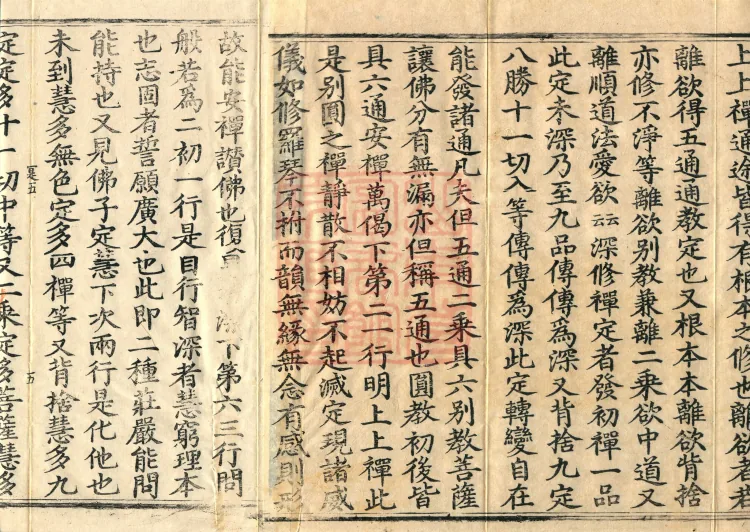 上上禪通途皆得有根本之修也離欲者若
離欲得五通通教定也又根本本離欲背捨
亦修不淨等離欲別教兼離二乘欲中道又
離順道法愛欲云云深修禪定者發初禪一品
此定夲深乃至九品傳傳爲深又背捨九定
八勝十一切入等傳傳爲深此定轉變自在
能發諸通凡夫但五通二乘具六別教菩薩
讓佛分有無漏亦但稱五通也圓教初後皆
具六通安禪萬偈下第二一行明上上禪此
是別圓之禪靜散不相妨不起滅定現諸威
儀如修羅琴不拊而韻無緣無念有感則形
故能安禪讚佛也復下第六三行問
般若爲二初一行是自行智深者慧窮理本
也志固者誓願廣大也此即二種莊嚴能問
能持也又見佛子定慧下次兩行是化他也
未到慧多無色定多四禪等又背捨慧多九
五 五
定定多十一切中等又二乘定多菩薩慧多